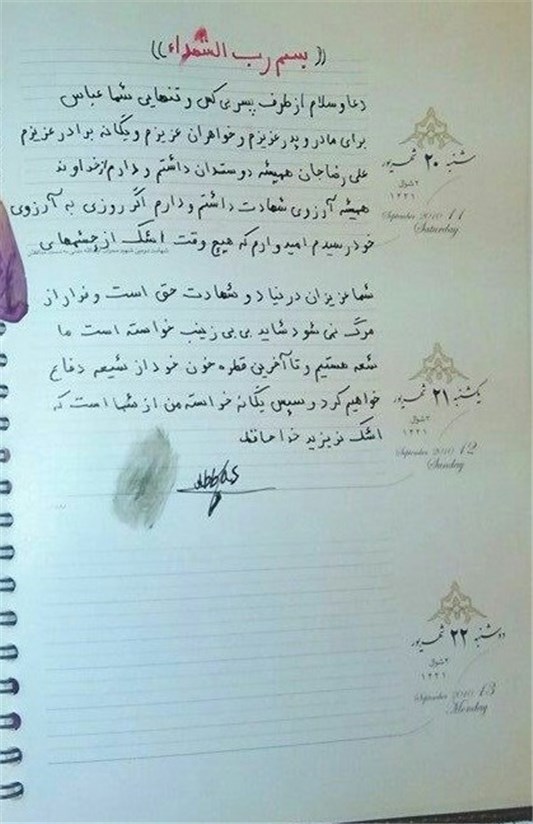 ((بسم رب الشهداء))
دعا و سلام از طرف پسر بی کس و تنهایی شما عباس
برای مادر و پدر عزیزم و خواهران عزیزم و یگانه برادر عزیزم
علی رضا جان همیشه دوستدان داشتم و دارم از خداوند
همیشه آرزوی شهادت داشتم و دارم اگر روزی به آرزوی
خود رسیدم امیدوارم که هیچ وقت اشک از چشمهایی
شما عزیزان در نیاد و شهادت حق است و فرار از
مرگ نمی شود شاید بی بی زینب خواسته است ما
شعه هستیم و تا آخرین قطره خون خود از شیعه دفاع
خواهیم کرد و سپس یگانه خواسته من از شما است که
اشک نریزید خدا حافظ
abbas
شنبه ۲۰ شهریور
۲ شوال
۱۴۳۱
September 2010 11
Saturday
یکشنبه ۲۱ شهریور
۳ شوال
۱۴۳۱
September 2010 12
Sunday
دوشنبه ۲۲ شهریور
۴ شوال
۱۴۳۱
September 2010 13
Monday